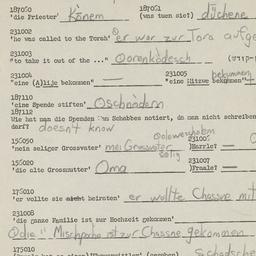 187060 187061
'die Priester' Kōnem (was tuen sie?) düchene
231002
'he was called to the Torah' er wor zur Tora aufge
231003
"to take it out of the ..." Oorenkōdesch
231004 231005 bekummen
"eine (A)lije bekommen" — "eine Mitzwe bekommen"
187110
'eine Spende stiften' Oschnōdern
187112
Wie hat man die Spenden am Schabbes notiert, da man nicht schreiben
darf? doesn't know
156050 231006
'mein seliger Grossvater' mei Grossvoter selig )Harrle?
156020 231007
'die alte Grossmutter' Oma )Fraale?
175010
'er wollte sie heiraten' er wollte Chassne mit
231008
'die ganze Familie ist zur Hochzeit gekommen'
die Mischpoche ist zur Chassne gekommen
175010